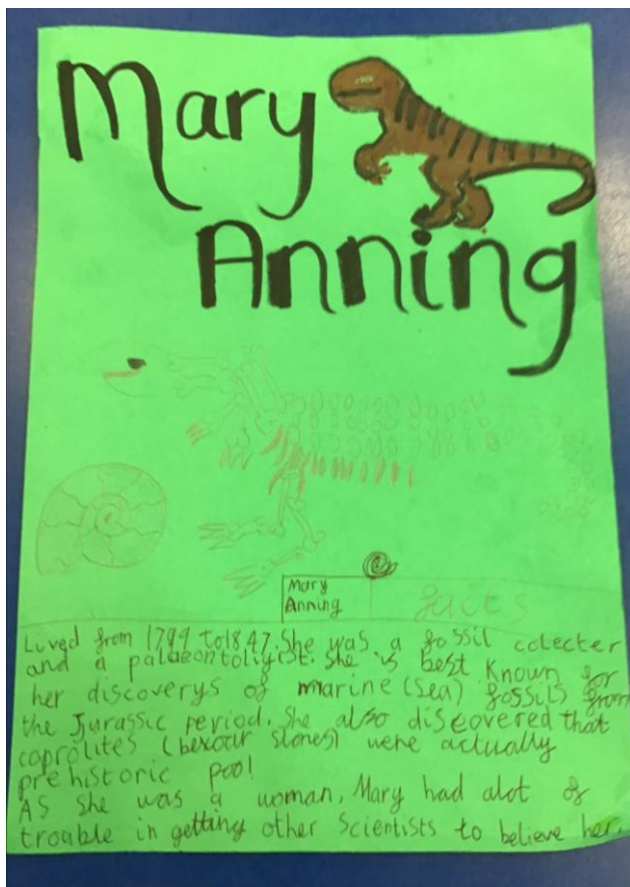 Mary
Anning
Mary
Anning
facts
Lived from 1799 to 1847. She was a fossil colecter
and a palaeontoligist. She is best known for
her discoverys of marine (sea) fossils from
the Jurassic period. She also discovered that
coprolites (bezoar stones) were actually
prehistoric poo!
As she was a woman, Mary had alot of
trouble in getting other Scientists to believe her.